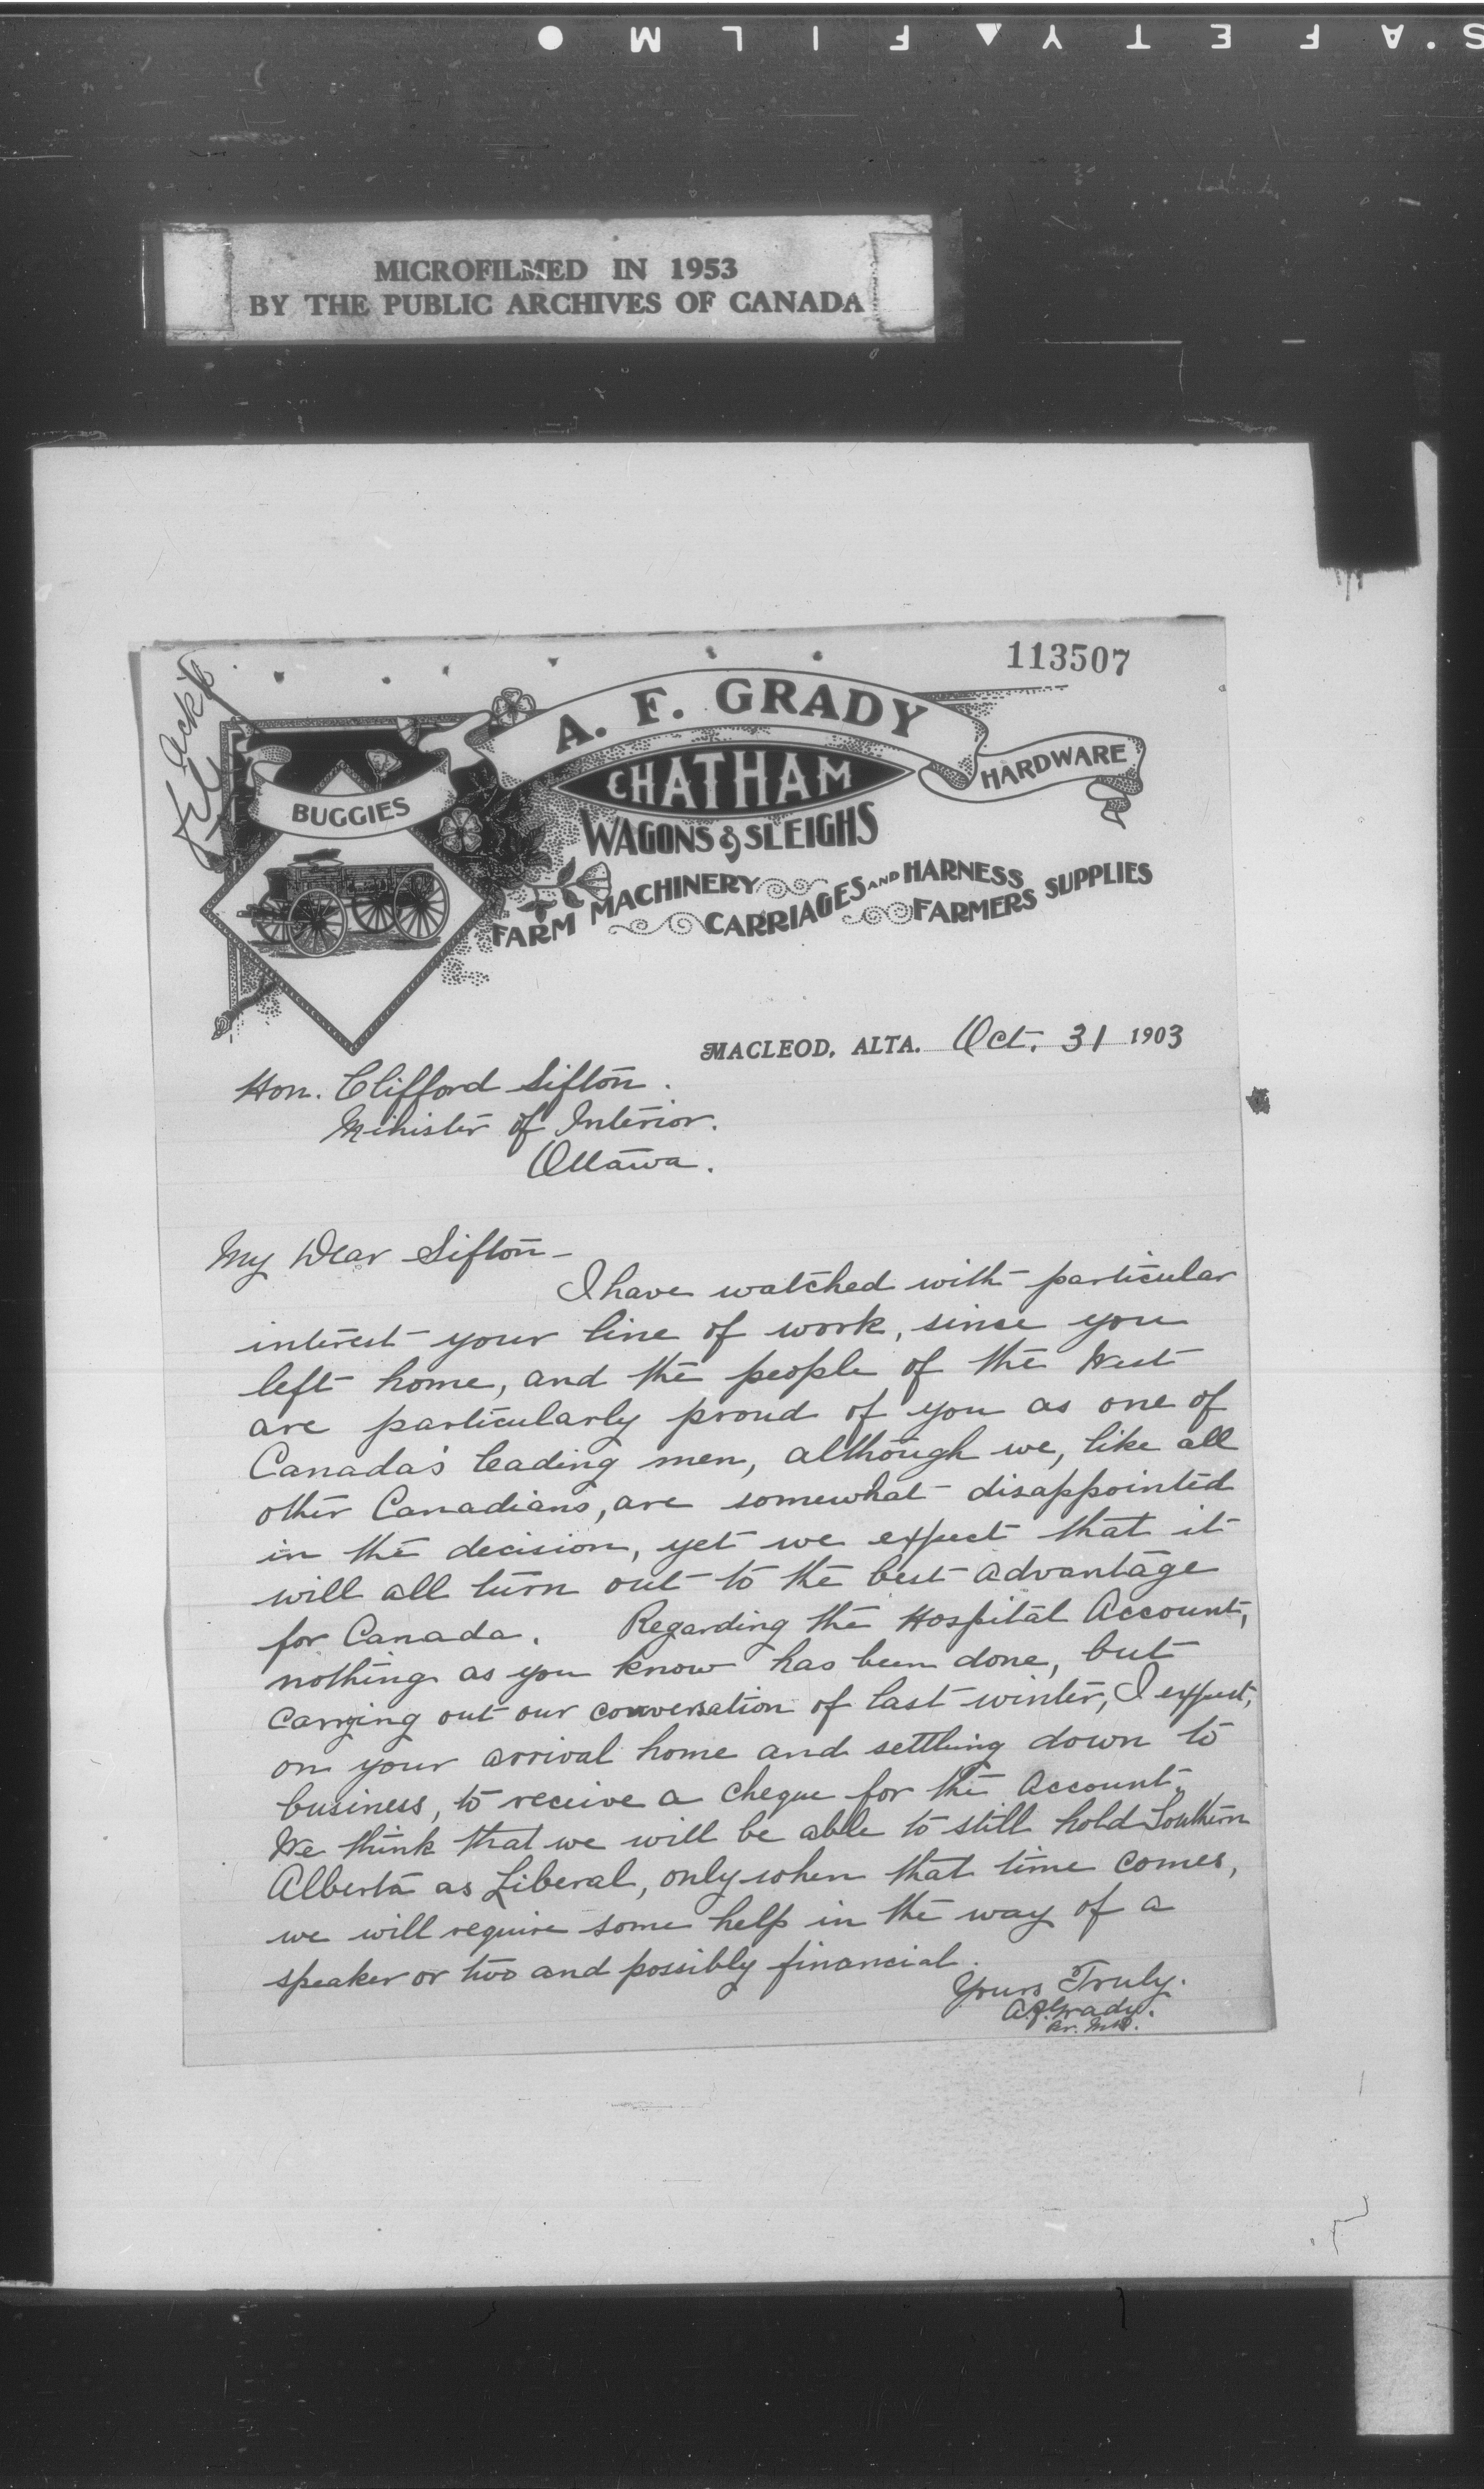 SAFETY FILM
MICROFILMED IN 1953
BY THE PUBLIC ARCHIVES OF CANADA
113507
Ack'd
A. F. GRADY
HARDWARE
BUGGIES
CHATHAM
WAGONS & SLEIGHS
FARM MACHINERY
CARRIAGES AND HARNESS
FARMERS SUPPLIES
MACLEOD, ALTA. Oct. 31 1903
Hon. Clifford Sifton.
Minister of Interior.
Ottawa.
My Dear Sifton -
I have watched with particular
interest your line of work, since you
left home, and the people of the West
are particularly proud of you as one of
Canada's leading men, although we, like all
other Canadians, are somewhat disappointed
in the decision, yet we expect that it
will all turn out to the best advantage
for Canada. Regarding the Hospital Account,
nothing as you know has been done, but
carrying out our conversation of last winter, I expect,
on your arrival home and settling down to
business, to receive a cheque for the Account.
We think that we will be able to still hold Southern
Alberta as Liberal, only when that time comes,
we will require some help in the way of a
speaker or two and possibly financial.
Yours Truly.
A.F. Grady.